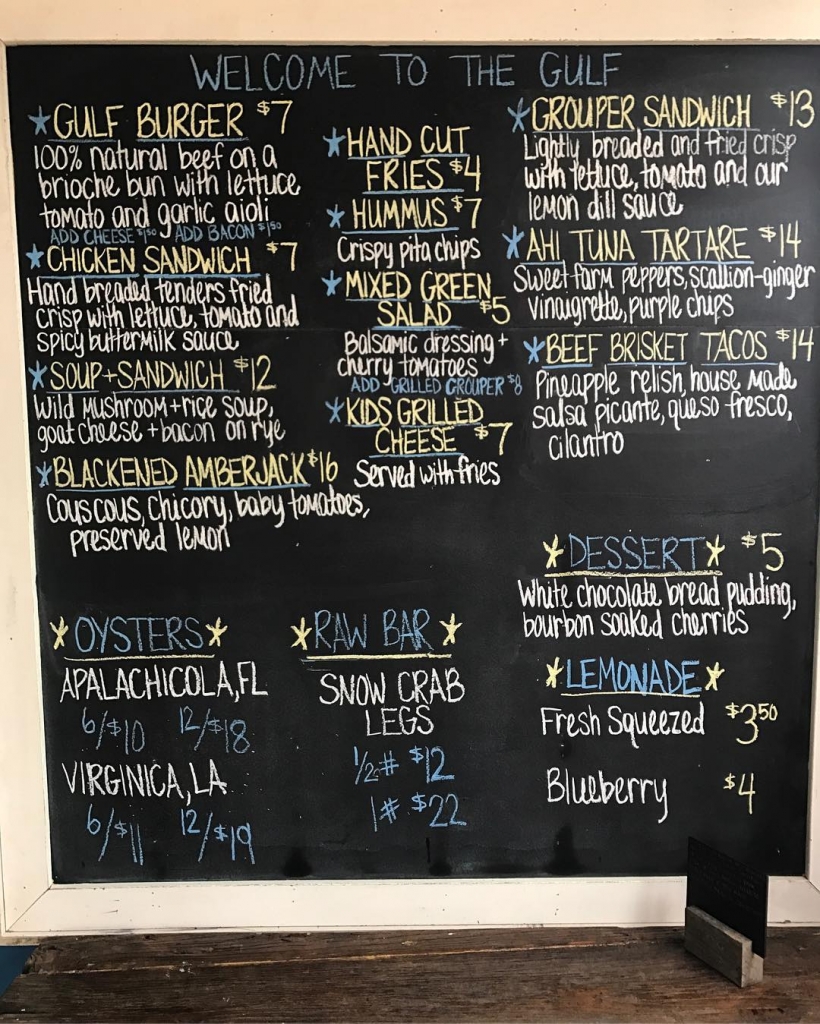 WELCOME TO THE GULF
*GULF BURGER $7
100% natural beef on a
brioche bun with lettuce
tomato and garlic aioli
ADD CHEESE $1.50 ADD BACON $1.50
*CHICKEN SANDWICH $7
Hand breaded tenders fried
crisp with lettuce, tomato and
spicy buttermilk sauce
*SOUP+SANDWICH $12
Wild mushroom+rice soup,
goat cheese + bacon on rye
*BLACKENED AMBERJACK $16
Couscous, chicory, baby tomatoes,
preserved lemon
*HAND CUT
FRIES $4
*HUMMUS $7
Crispy pita chips
*MIXED GREEN
SALAD $5
Balsamic dressing +
cherry tomatoes
ADD GRILLED GROUPER $8
*KIDS GRILLED
CHEESE $7
Served with fries
*GROUPER SANDWICH $13
Lightly breaded and fried crisp
with lettuce, tomato and our
lemon dill sauce
*AHI TUNA TARTARE $14
Sweet farm peppers, scallion-ginger
vinaigrette, purple chips
*BEEF BRISKET TACOS $14
Pineapple relish, house made
salsa picante, queso fresco,
cilantro
*DESSERT* $5
White chocolate bread pudding,
bourbon soaked cherries
*LEMONADE*
Fresh Squeezed $3.50
Blueberry $4
*OYSTERS*
APALACHICOLA, FL
6/$10 12/$18
VIRGINICA, LA
6/$11 12/$19
*RAW BAR*
SNOW CRAB
LEGS
1/2# $12
1# $22